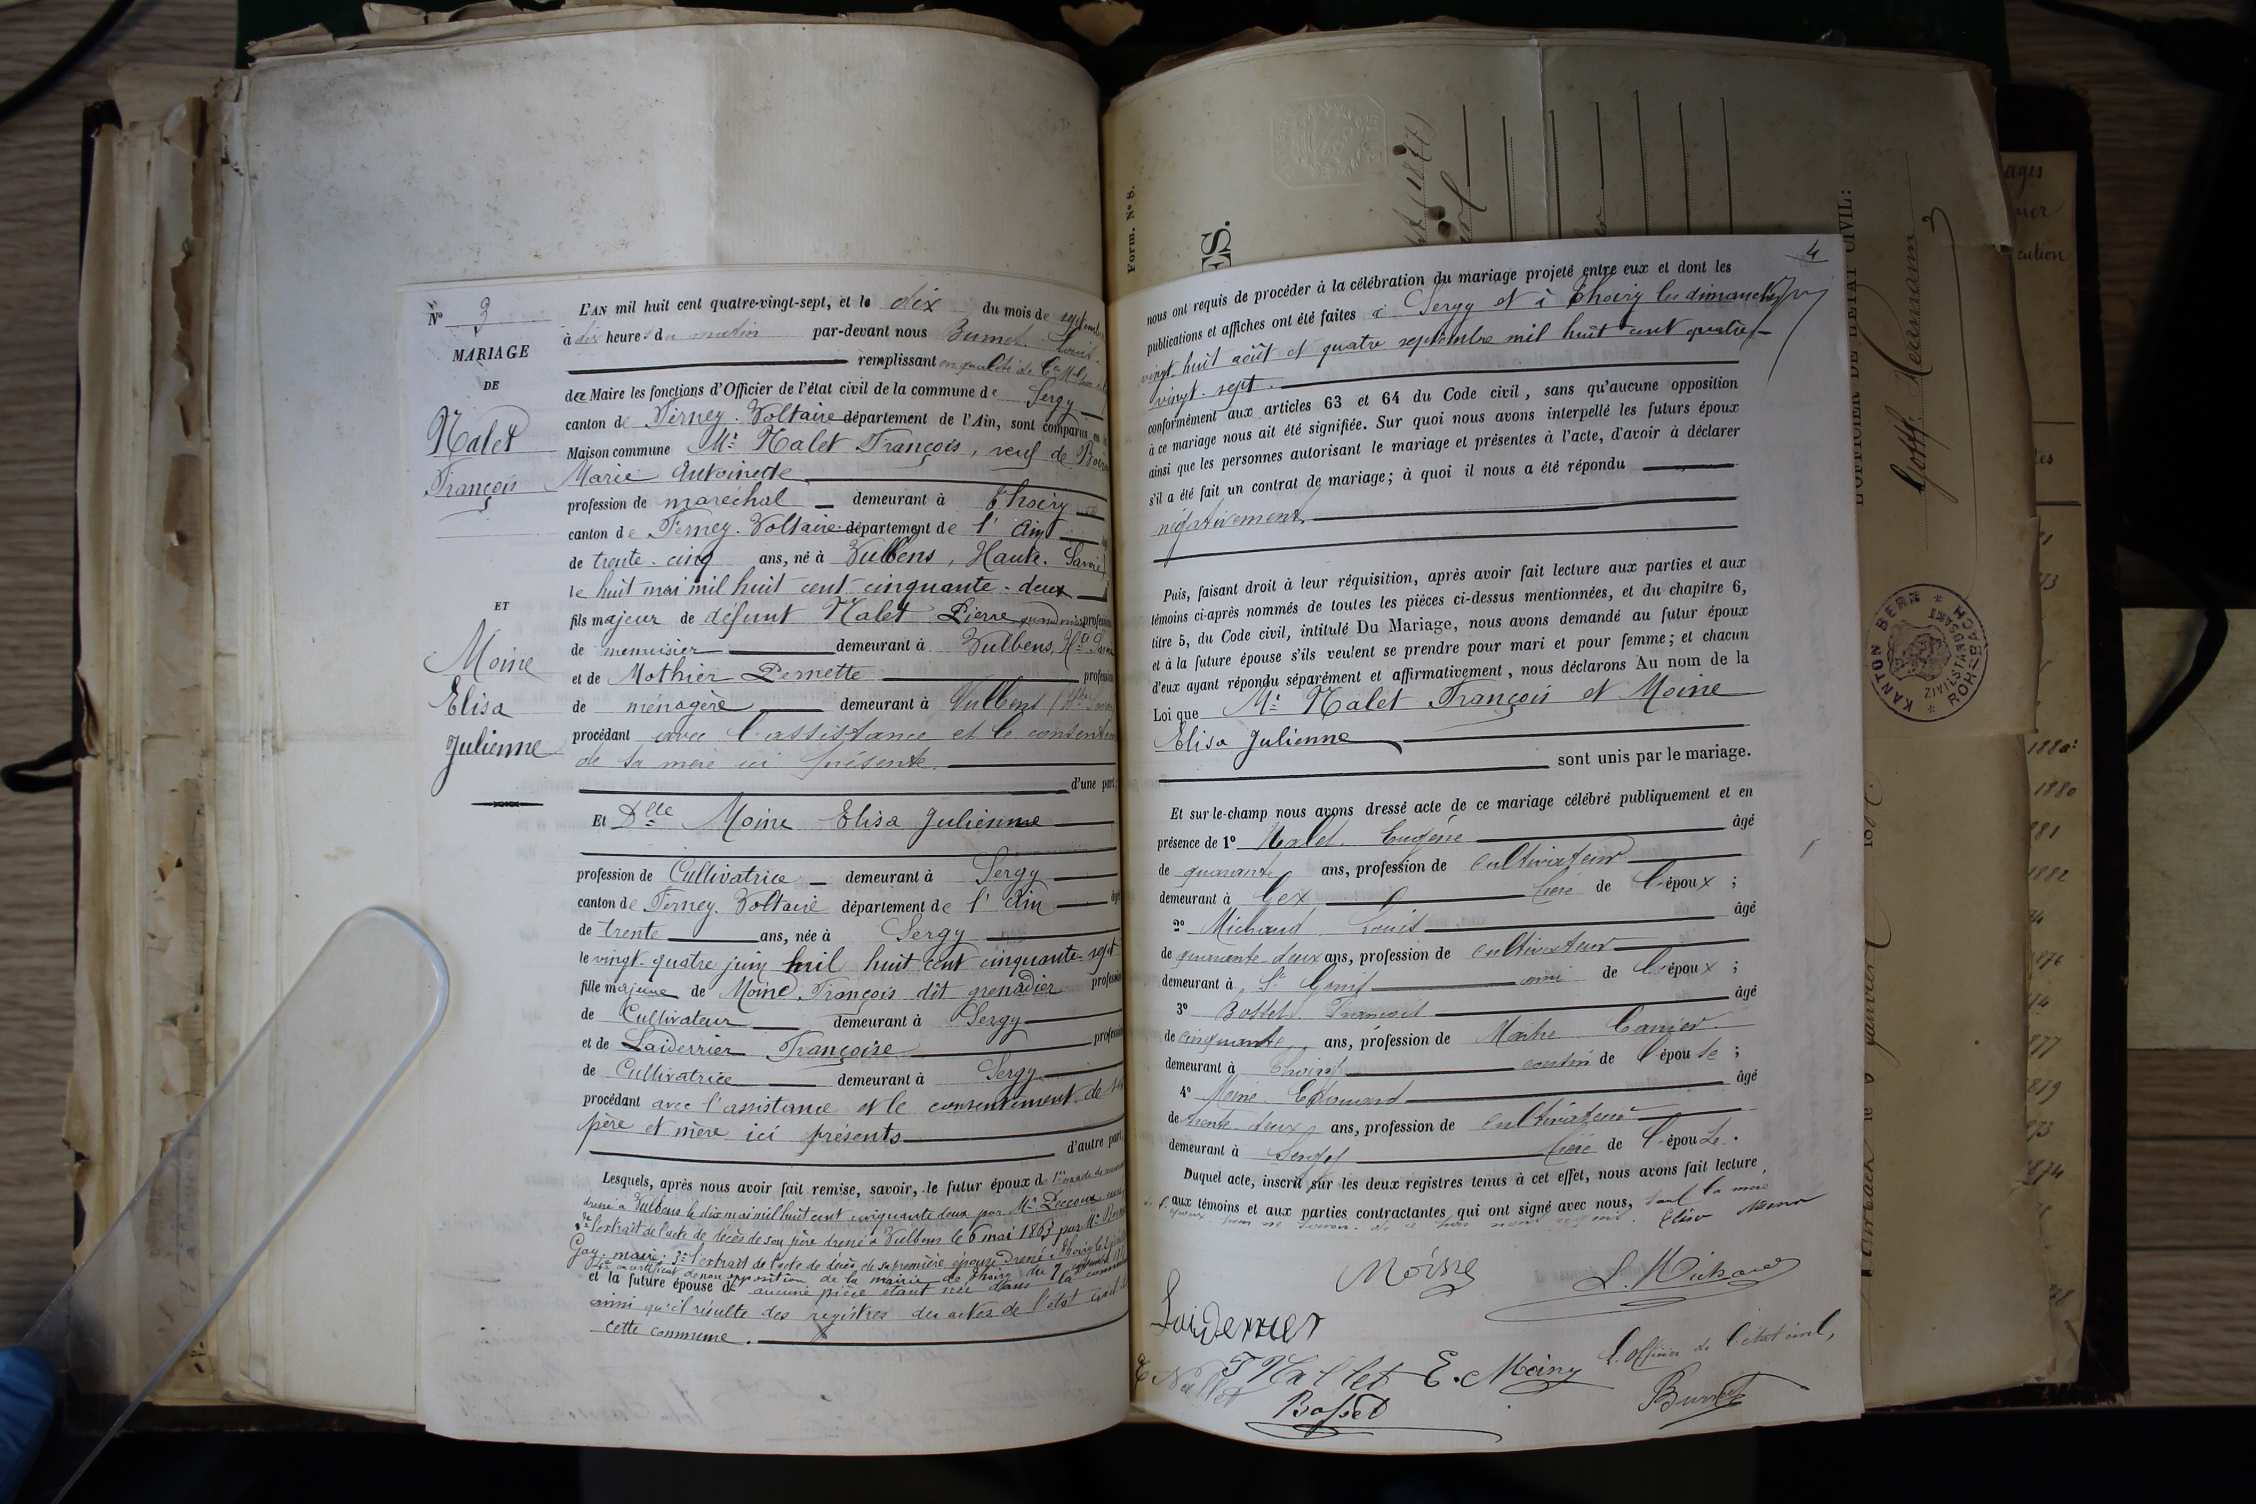 Nº 3
MARIAGE
DE
Nalet
François
ET
Moine
Elisa
Julienne
L'AN mil huit cent quatre-vingt-sept, et le dix du mois de septembre
à dix heures du matin par-devant nous Burnet Louis
remplissant en qualité de
de Maire les fonctions d'Officier de l'état civil de la commune de Sergy
canton de Ferney-Voltaire département de l'Ain, sont comparus en la
Maison commune Mr Nalet François, veuf de
Marie Antoinette
profession de maréchal demeurant à Thoiry
canton de Ferney-Voltaire département de l'Ain
de trente-cinq ans, né à Vulbens, Haute-Savoie
le huit mai mil huit cent cinquante-deux
fils majeur de défunt Nalet Pierre quand vivait profession
de menuisier demeurant à Vulbens, Hte Savoie
et de Mothier Pernette profession
de ménagère demeurant à Vulbens (Hte Savoie
procédant avec l'assistance et le consentement
de sa mère ici présente.
d'une part;
Et Dlle Moine Elisa Julienne
profession de Cultivatrice demeurant à Sergy
canton de Ferney-Voltaire département de l'Ain âgée
de trente ans, née à Sergy
le vingt-quatre juin mil huit cent cinquante-sept
fille majeure de Moine François dit grenadier profession
de Cultivateur demeurant à Sergy
et de Laiderrier Françoise profession
de Cultivatrice demeurant à Sergy
procédant avec l'assistance et le consentement de ses
père et mère ici présents
d'autre part.
Lesquels, après nous avoir fait remise, savoir, le futur époux de 1º
dressé à Vulbens le dix mai mil huit cent cinquante deux par Mr
2º l'extrait de l'acte de décès de son père dressé à Vulbens le 6 mai 1863 par Mr
Gay, maire; 3º l'extrait de l'acte de décès de sa première épouse dressé à Thoiry le
4º certificat de non opposition de la mairie de Thoiry du 7 septembre
et la future épouse de aucune pièce étant née dans la commune
ainsi qu'il résulte des registres des actes de l'état civil de
cette commune.
4
nous ont requis de procéder à la célébration du mariage projeté entre eux et dont les
publications et affiches ont été faites à Sergy et à Thoiry les dimanches
vingt-huit août et quatre septembre mil huit cent quatre-
vingt-sept.
conformément aux articles 63 et 64 du Code civil, sans qu'aucune opposition
à ce mariage nous ait été signifiée. Sur quoi nous avons interpellé les futurs époux
ainsi que les personnes autorisant le mariage et présentes à l'acte, d'avoir à déclarer
s'il a été fait un contrat de mariage; à quoi il nous a été répondu
négativement.
Puis, faisant droit à leur réquisition, après avoir fait lecture aux parties et aux
témoins ci-après nommés de toutes les pièces ci-dessus mentionnées, et du chapitre 6,
titre 5, du Code civil, intitulé Du Mariage, nous avons demandé au futur époux
et à la future épouse s'ils veulent se prendre pour mari et pour femme; et chacun
d'eux ayant répondu séparément et affirmativement, nous déclarons Au nom de la
Loi que Mr Nalet François et Moine
Elisa Julienne
sont unis par le mariage.
Et sur-le-champ nous avons dressé acte de ce mariage célébré publiquement et en
présence de 1º Nalet Eugène âgé
de quarante ans, profession de cultivateur
demeurant à Gex frère de l'époux;
2º Michaud Louis âgé
de quarante-deux ans, profession de cultivateur
demeurant à St Genis ami de l'époux;
3º Bosset François âgé
de cinquante ans, profession de
demeurant à Thoiry cousin de l'épouse;
4º Moine Edouard âgé
de trente-deux ans, profession de cultivateur
demeurant à Sergy frère de l'épouse.
Duquel acte, inscrit sur les deux registres tenus à cet effet, nous avons fait lecture
aux témoins et aux parties contractantes qui ont signé avec nous, sauf la mère
Elisa Moine
Moine
L. Michaud
Laiderrier
L'officier de l'état civil,
E Nallet
F Nallet
E. Moine
Bosset
Burnet
Form. Nº 8.
ES.
L'OFFICIER DE L'ÉTAT CIVIL:
KANTON BERN
ZIVILSTANDSAMT
ROHRBACH
1880
881
1882
1874